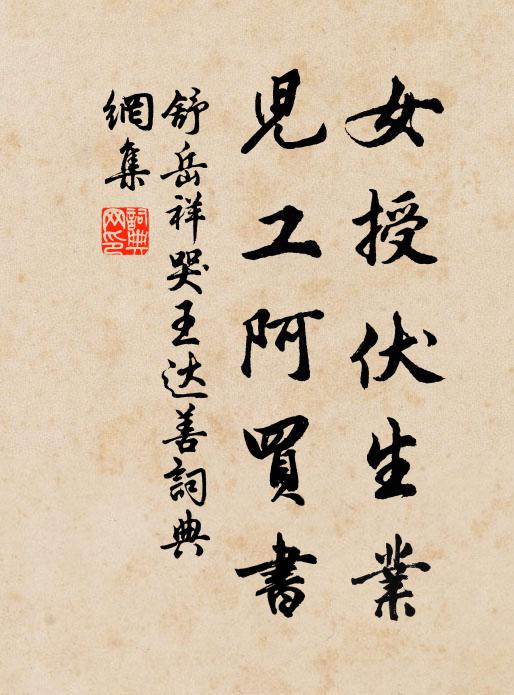 女授伏生業
兒工阿買書
舒岳祥哭王达善詞典
網集
詞典
网印